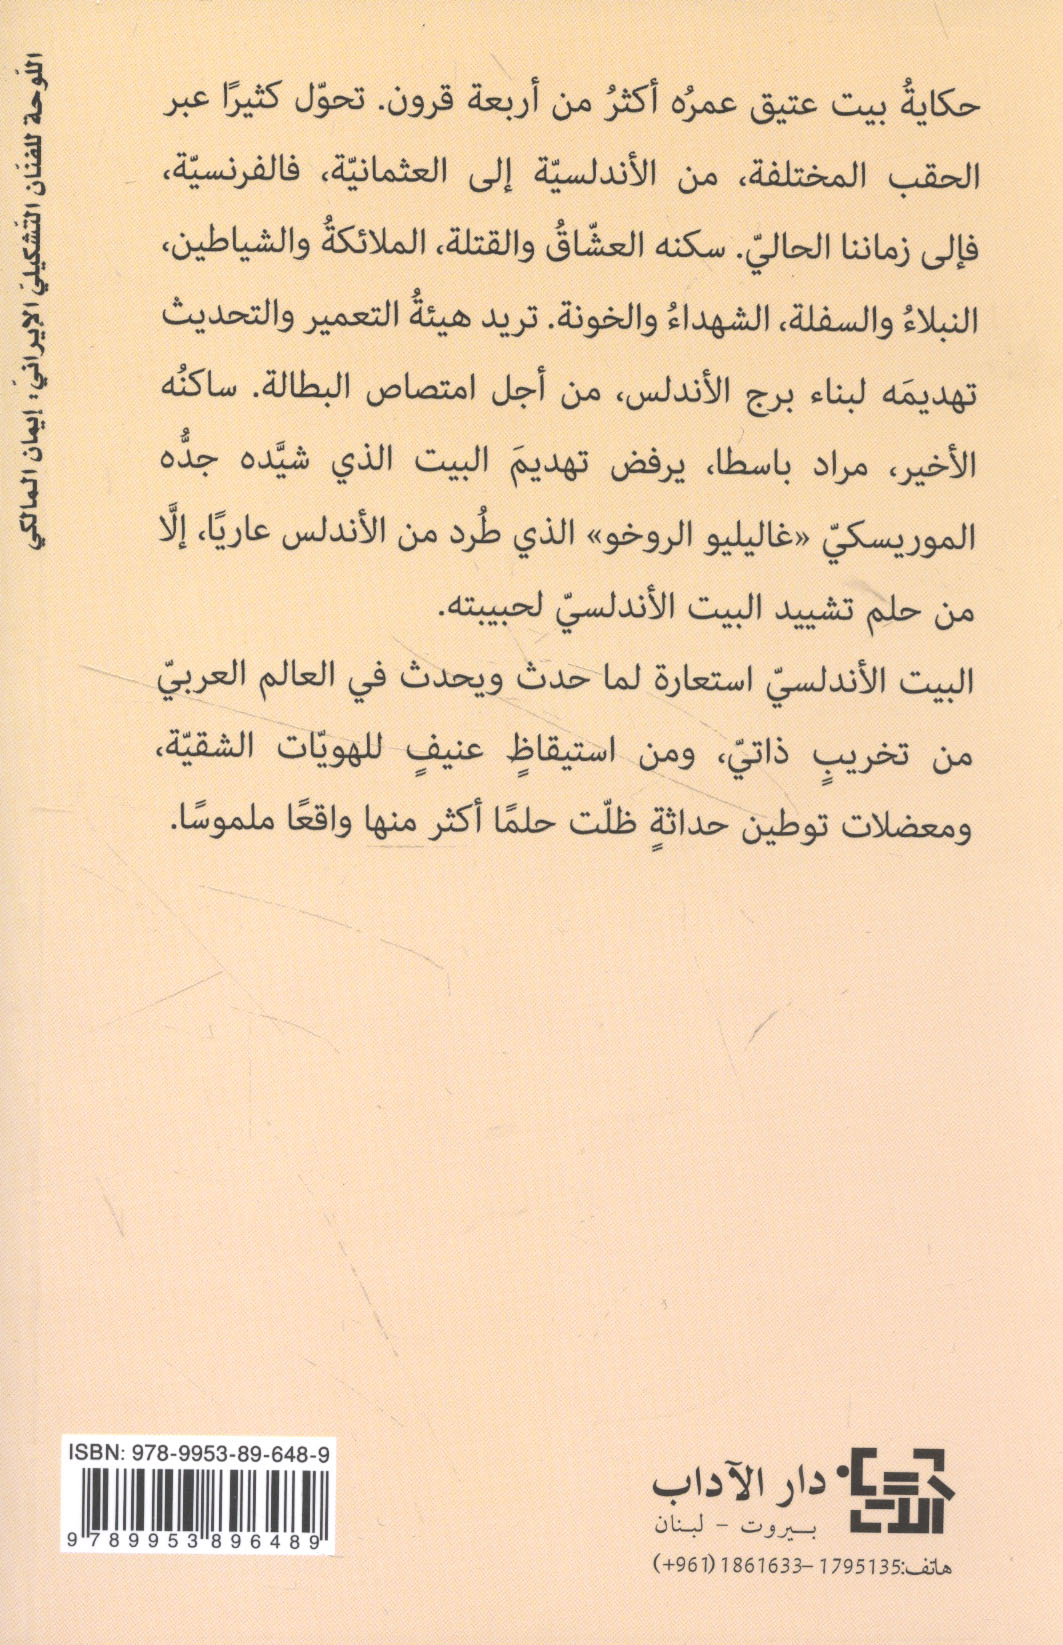 حكايةُ بيت عتيق عمرُه أكثرُ من أربعة قرون. تحوّل كثيرًا عبر
الحقب المختلفة، من الأندلسيّة إلى العثمانيّة، فالفرنسيّة،
فإلى زماننا الحاليّ. سكنه العشّاقُ والقتلة، الملائكةُ والشياطين،
النبلاءُ والسفلة، الشهداءُ والخونة. تريد هيئةُ التعمير والتحديث
تهديمَه لبناء برج الأندلس، من أجل امتصاص البطالة. ساكنُه
الأخير، مراد باسطا، يرفض تهديمَ البيت الذي شيَّده جدُّه
الموريسكيّ «غاليليو الروخو» الذي طُرد من الأندلس عاريًا، إلَّا
من حلم تشييد البيت الأندلسيّ لحبيبته.
البيت الأندلسيّ استعارة لما حدث ويحدث في العالم العربيّ
من تخريبٍ ذاتيّ، ومن استيقاظٍ عنيفٍ للهويّات الشقيّة،
ومعضلات توطين حداثةٍ ظلّت حلمًا أكثر منها واقعًا ملموسًا.
اللّوحة للفنّان التّشكيليّ الإيرانيّ: إيمان المالكي
ISBN: 978-9953-89-648-9
9 789953 896489
دار الآداب
بيروت - لبنان
هاتف:1795135–1861633 (961+)